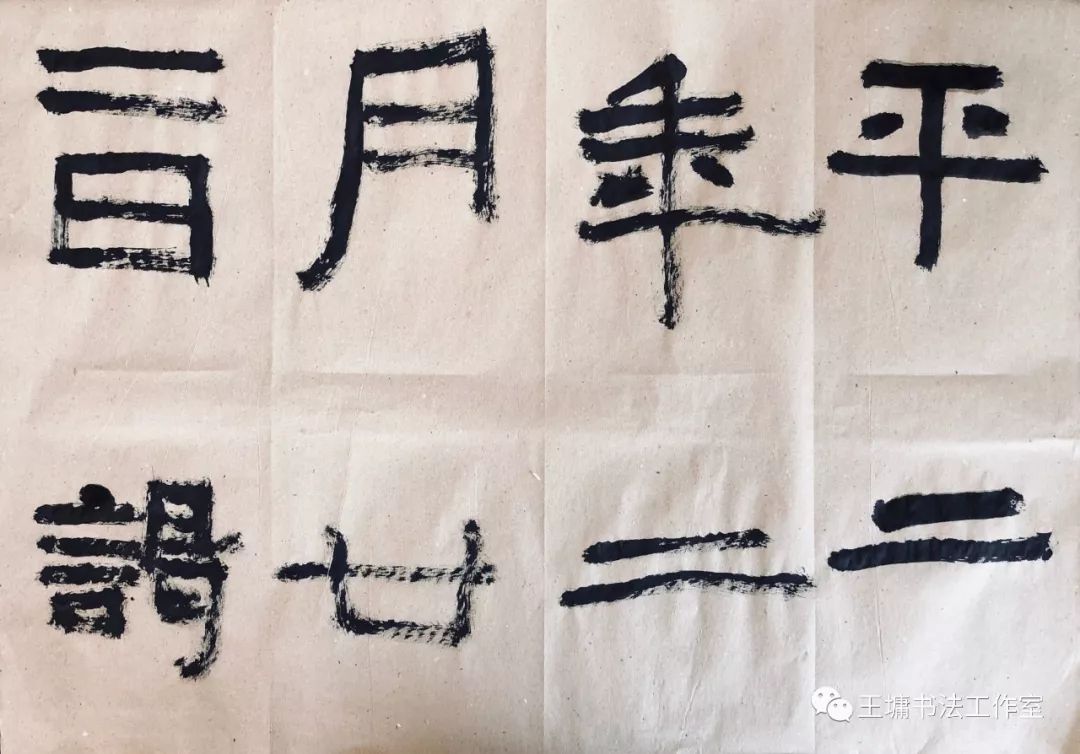 平二
年二
月廿
二日謁
王墉书法工作室